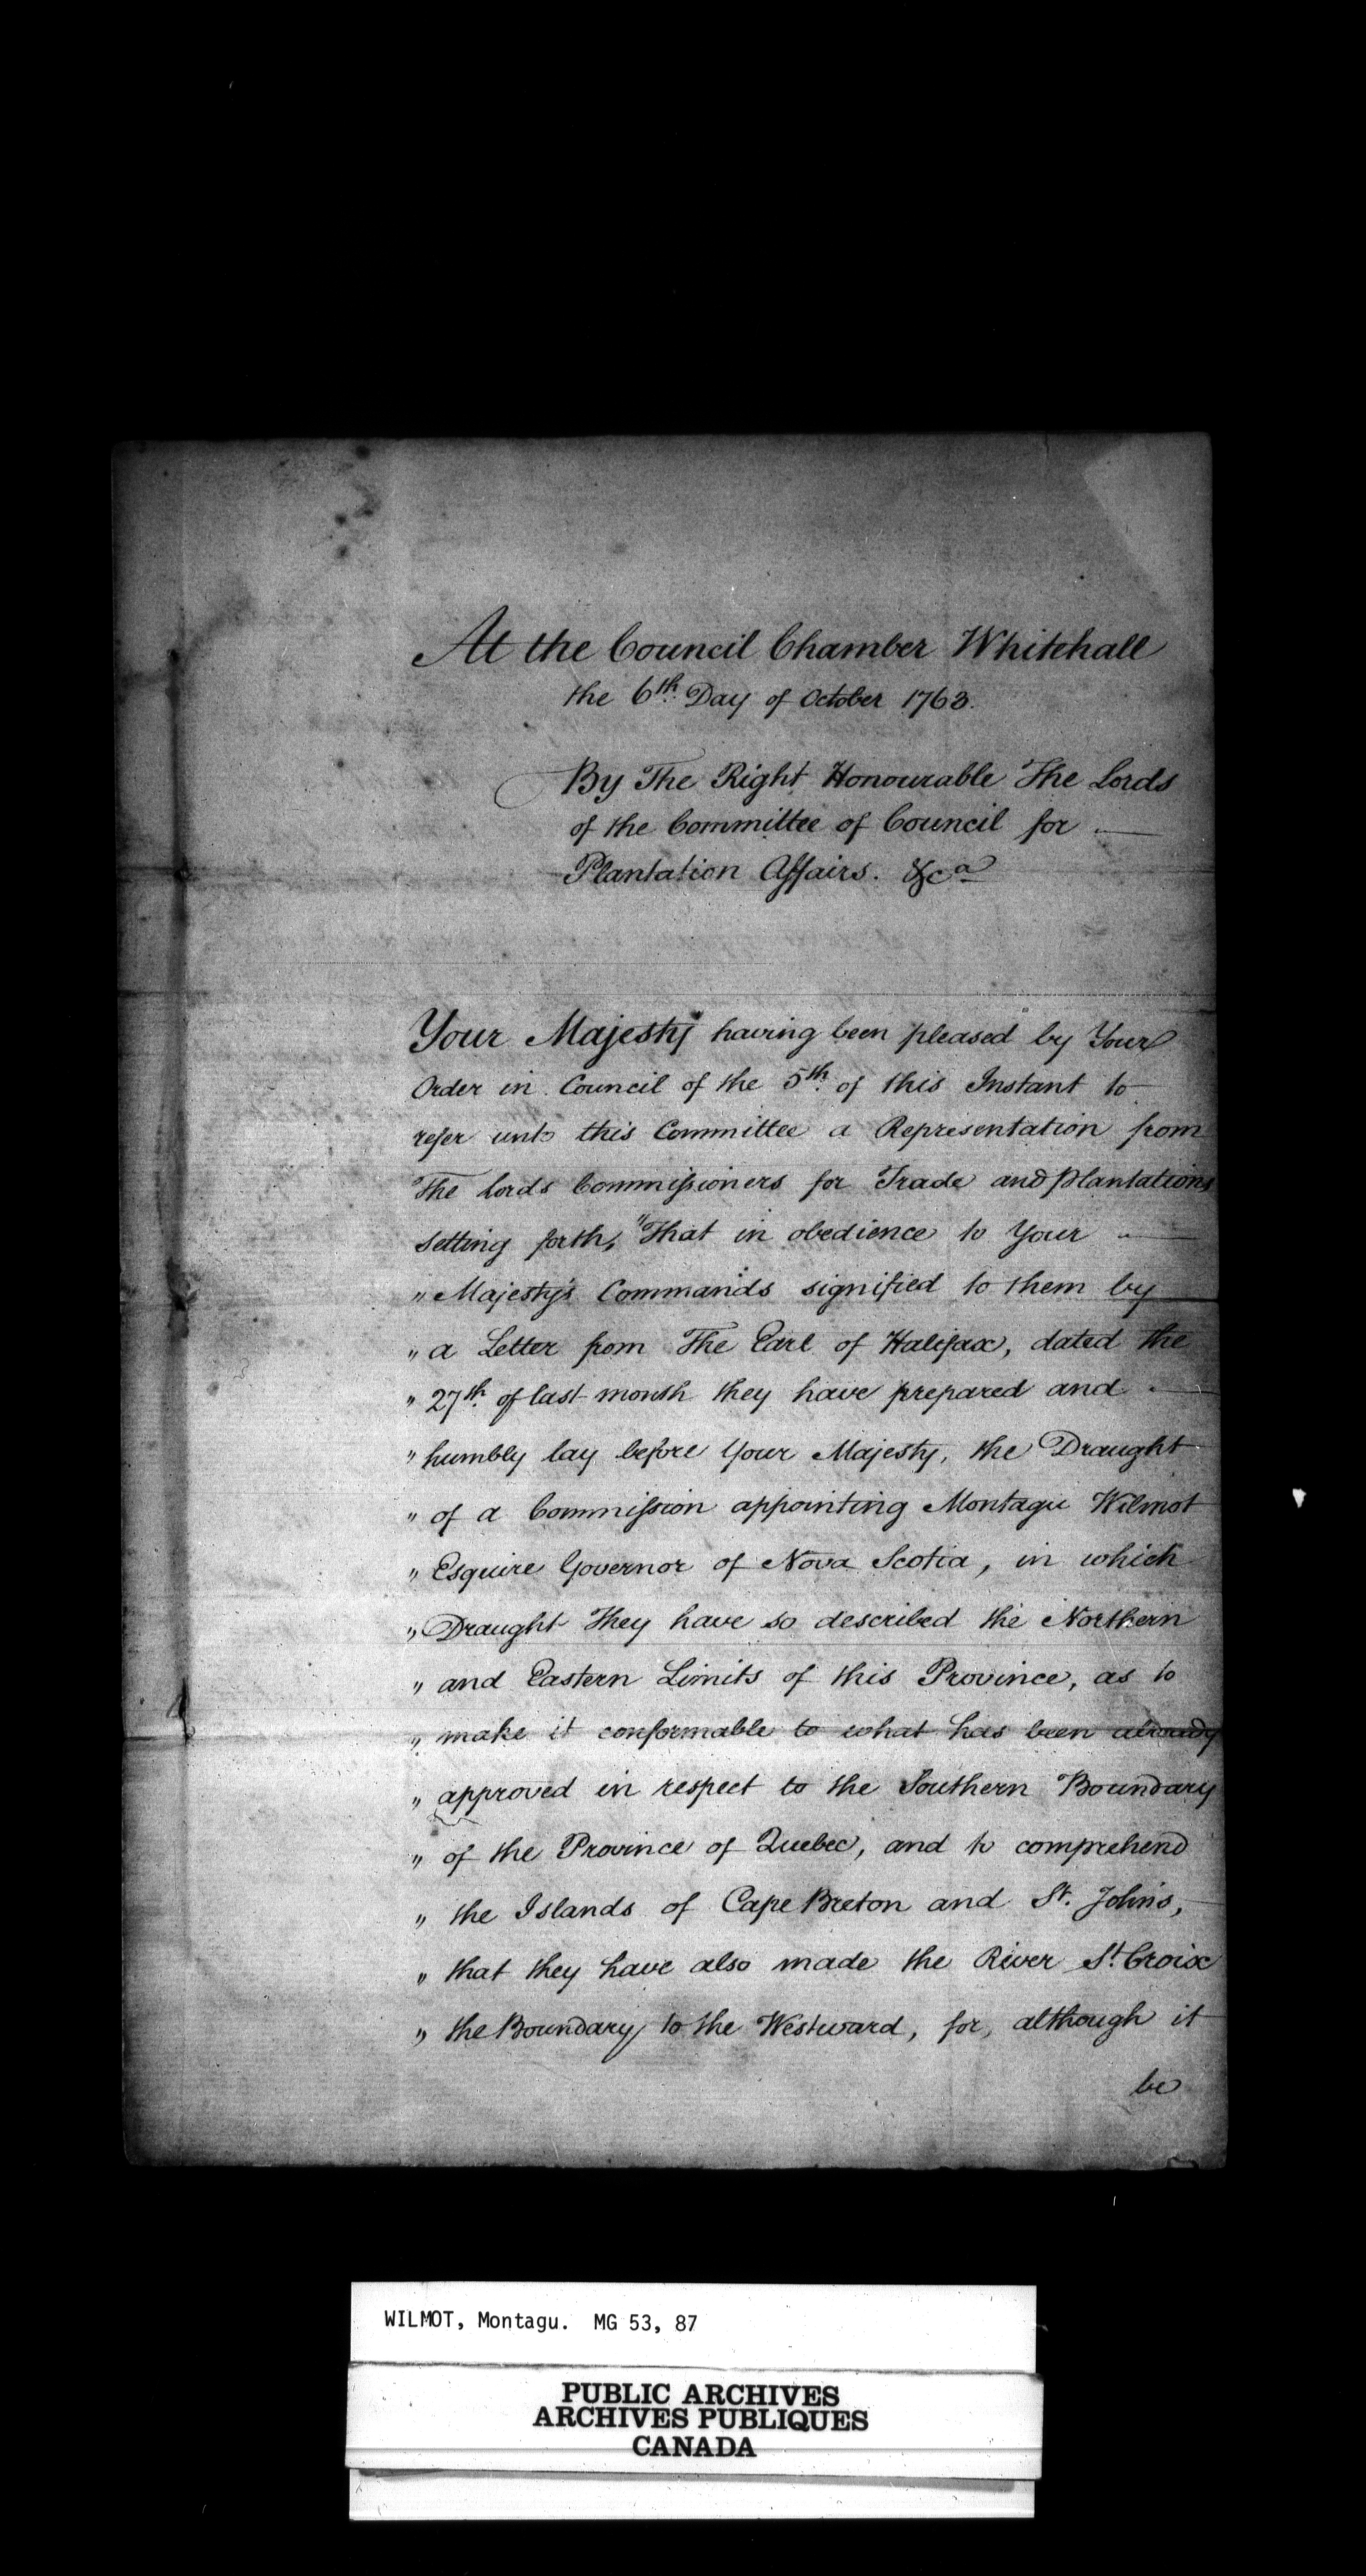 At the Council Chamber Whitehall
the 6th. Day of October 1763.
By The Right Honourable The Lords
of the Committee of Council for
Plantation Affairs. &ca
Your Majesty having been pleased by Your
Order in Council of the 5th. of this Instant to
refer unto this Committee a Representation from
The Lords Commissioners for Trade and Plantations
setting forth, "That in obedience to Your
" Majesty's Commands signified to them by
" a Letter from The Earl of Halifax, dated the
" 27th. of last month they have prepared and
" humbly lay before Your Majesty, the Draught
" of a Commission appointing Montagu Wilmot
" Esquire Governor of Nova Scotia, in which
" Draught They have so described the Northern
" and Eastern Limits of this Province, as to
" make it conformable to what has been already
" approved in respect to the Southern Boundary
" of the Province of Quebec, and to comprehend
" the Islands of Cape Breton and St. John's,
" that they have also made the River St. Croix
" the Boundary to the Westward, for, although it
be
WILMOT, Montagu. MG 53, 87
PUBLIC ARCHIVES
ARCHIVES PUBLIQUES
CANADA